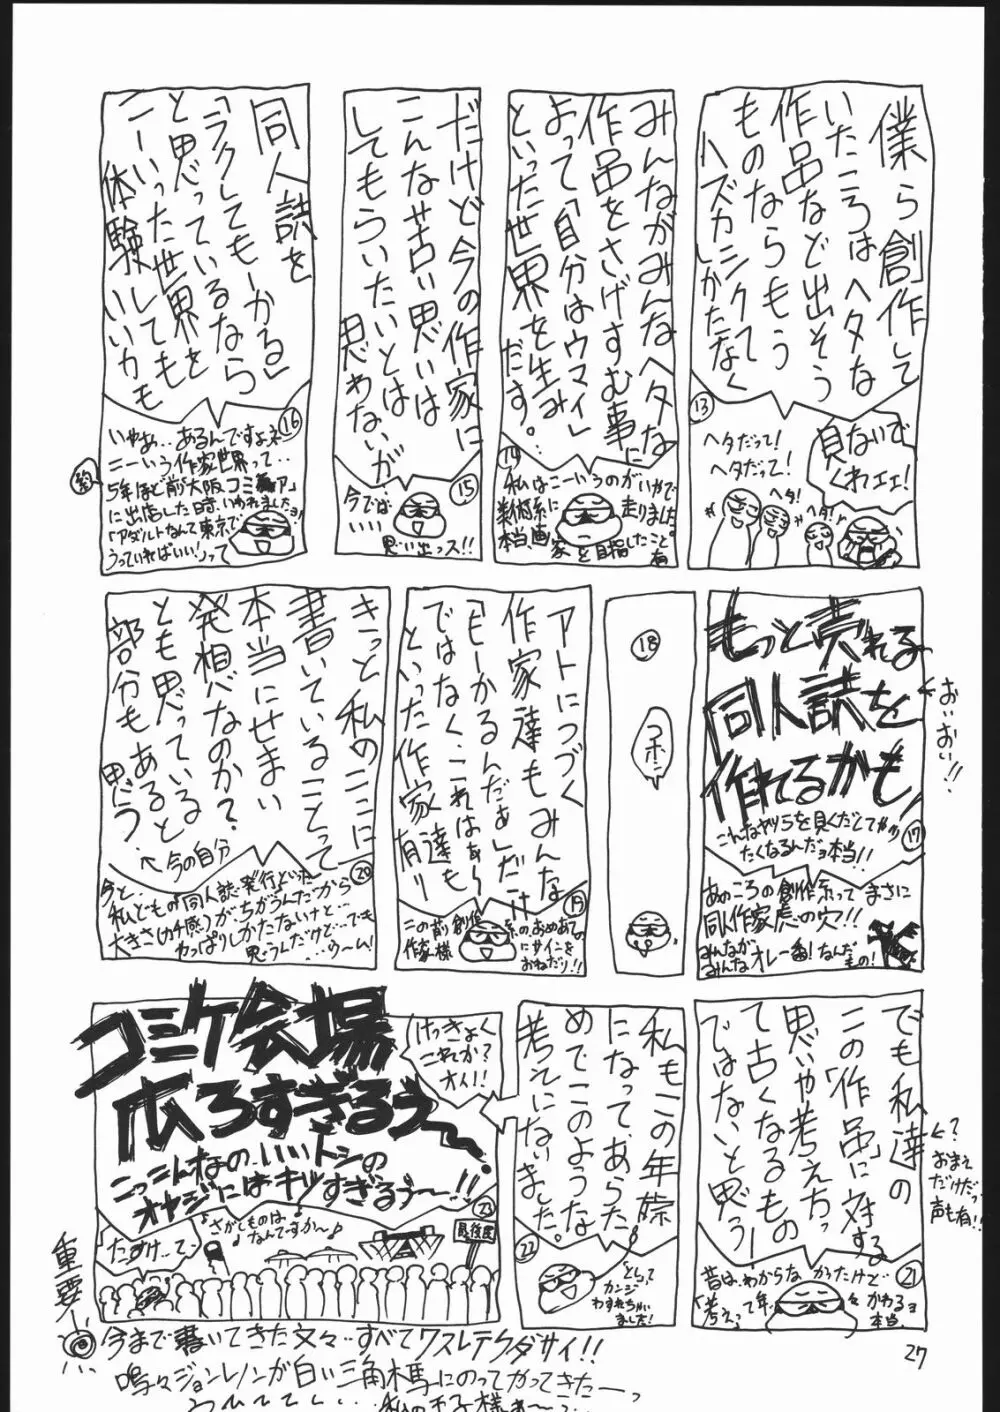 僕ら創作して
いたころはヘタな
作品など出そう
ものならもう
ハズカシクて
しかたなく
負ないで
くれェェ!
13
ヘタだって!
ヘタだって!
ヘタ!
ヘタ!
みんながみんなヘタな
作品をさげすむ事に
よって「自分はウマイ」
といった世界を生み
だす。
14
私はこーいうのがいやで
美術系に走りました
本当、画家を目指したこと。
有
だけど今の作家に
こんな苦い思いは
してもらいたいとは
思わないが
15
今では
いい
思い出っス!!
同人誌を
「ラクしてもーかる」
と思っているなら
こーいった世界を
体験しても
いいかも
16
いやぁ…あるんですよネ
こーいう作家世界って…
5年ほど前大阪コミ
に出店した時、いわれましたョ
「アダルトなんて東京で
うっていればいい!」って
もっと売れる
同人誌を
作れるかも!
おいおい!!
17
こんなヤツらを見くだしてやり
たくなるんだョ本当!!
あのころの創作系ってまさに
同人作家虎の穴!!
みんなが
みんなオレ一番!なんだ
もの!
18
コホン
アトにつづく
作家達もみんな
「もーかるんだぁ」だけ
ではなく、これはぁ〜
といった作家達も
有り
19
この前創作系の、おめあての
作家様にサインを
おねだり!!
きっと私のここに
書いていることって
本当にせまい
発想なのか?
とも思っている
部分もあると
思う。
←今の自分
20
今と…
私どもの「同人誌発行」といった
大きさ(カチ感)がちがうんだから
やっぱりしかたないけど…
思うんだけど…でも
…ウーム!
でも私達の
この「作品」に対する
思いや考え方っ
て古くなるもの
ではないと思う!
←?
おまえ
だけだっ
声も有!!
21
昔は、わからなかったけど…
「考え」って年々かわるョ
本当。
私もこの年際
になって、あらた
めてこのような
考えにないました。
22
「とし」って
カンジ
わすれちゃい
ました!
けっきょく
これか?
オイ!!
コミケ会場
広ろすぎるぅ〜
こっこんなの、いいトシの
オヤジにはキツすぎるぅ〜!!
23
♪さがしものは
なんですか〜♪
最後尾
たすけ…て…
重要!
今まで書いてきた文々…すべてワスレテクダサイ!!
嗚々ジョンレノンが白い三角木馬にのってやってきたーっ
27